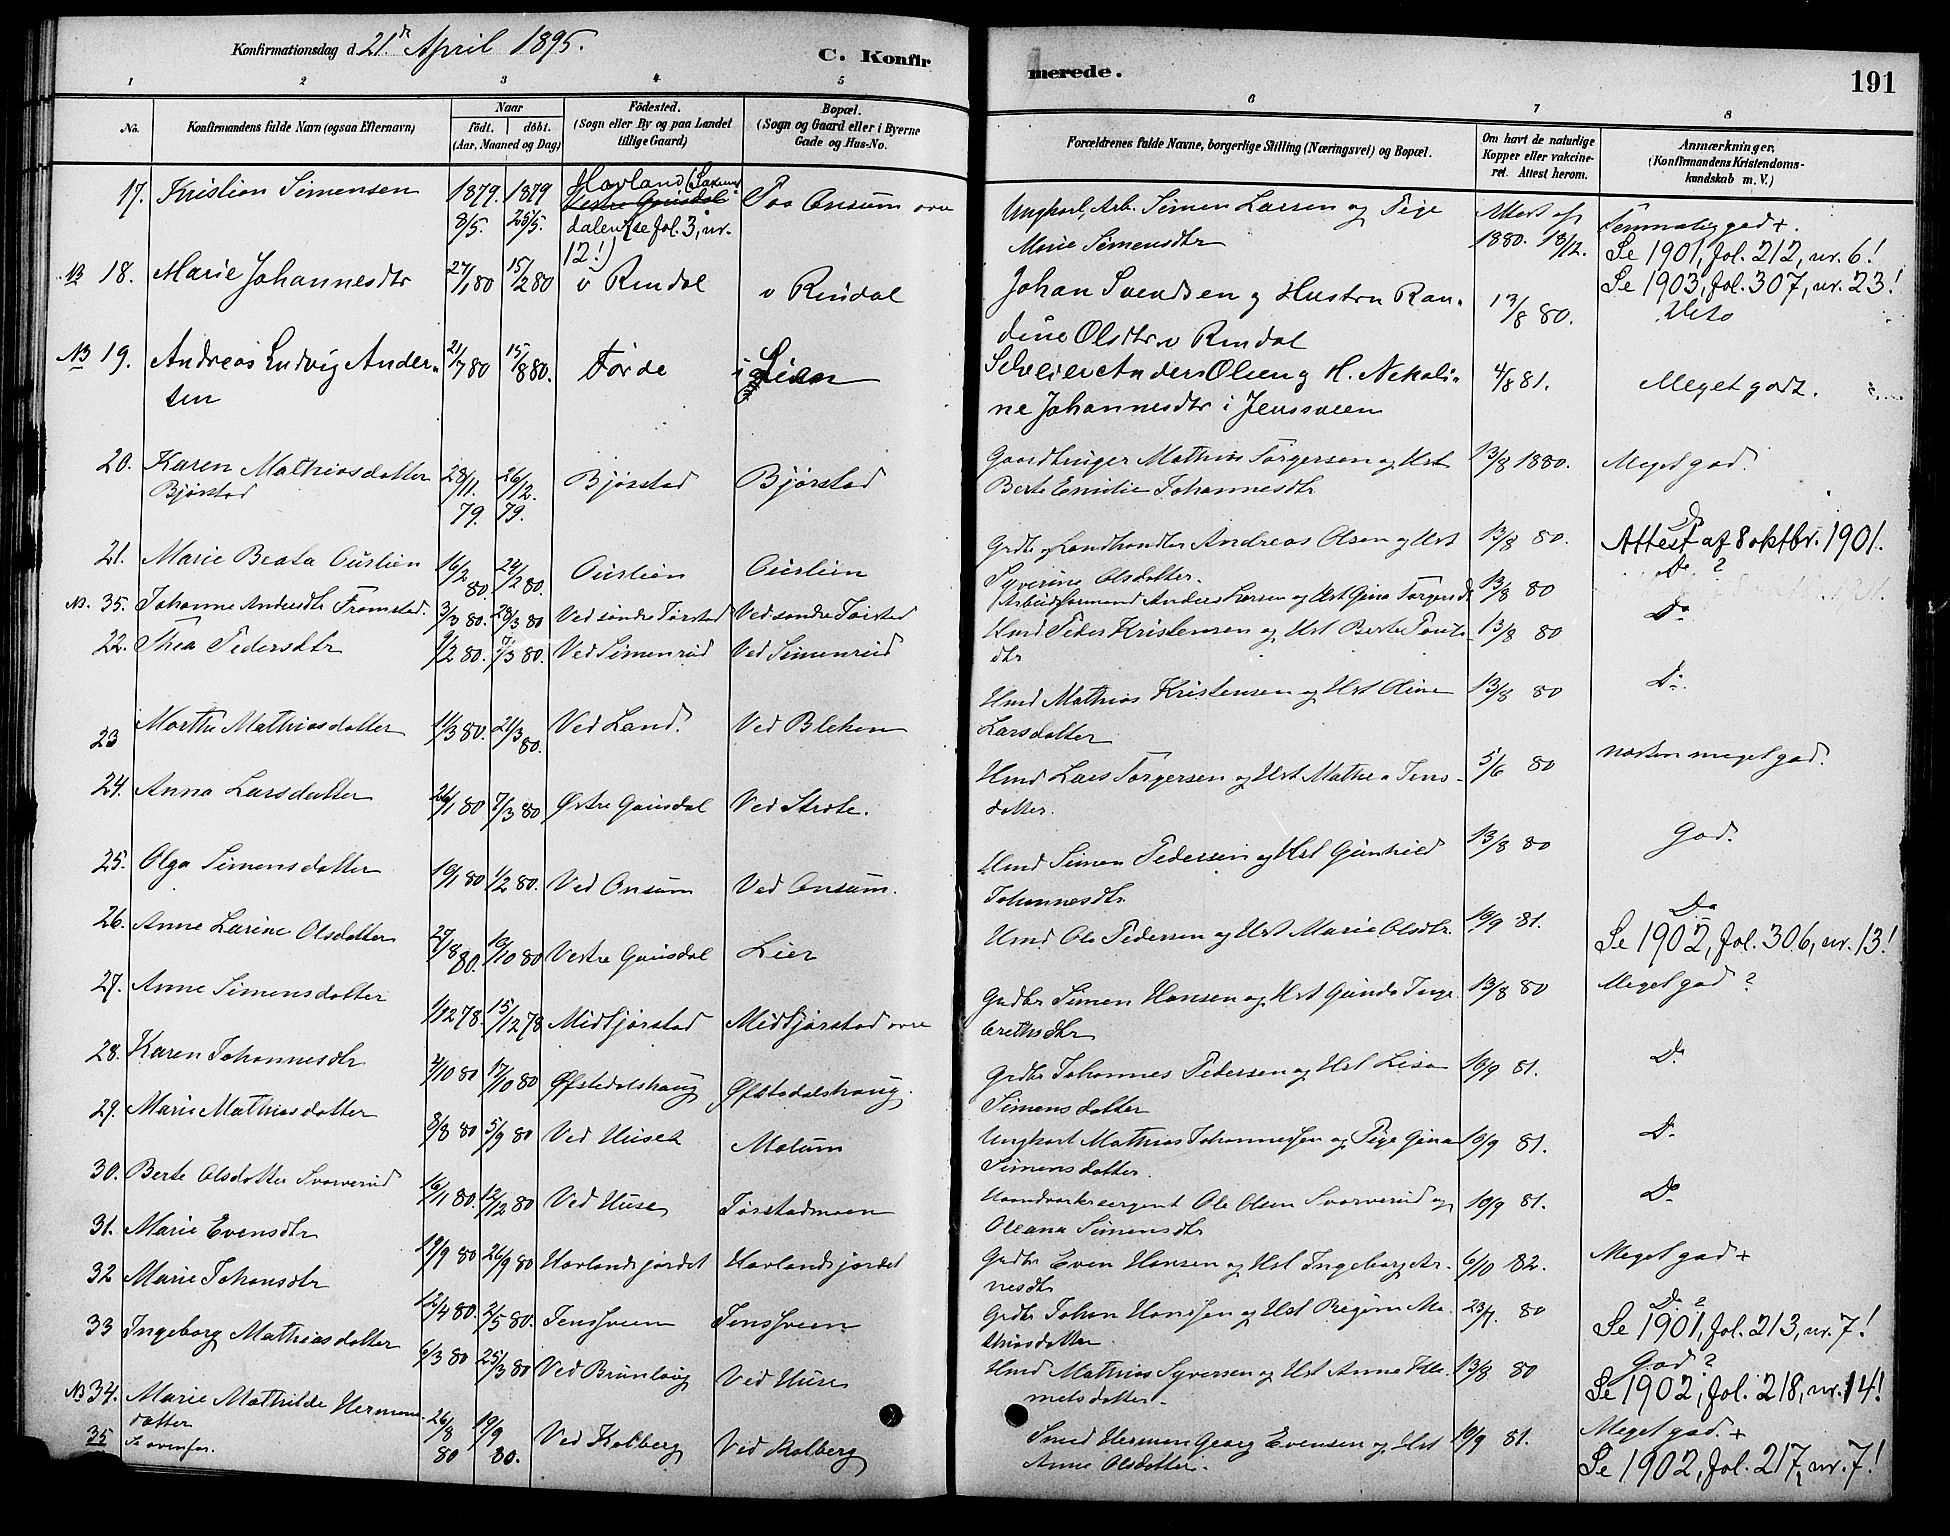 Konfirmationsdag d. 21de April 1895.
C. Konfirmerede.
191
1 2 3 4 5 6 7 8
No.
Konfirmandens fulde Navn (ogsaa Efternavn)
Naar
født. døbt.
(Aar, Maaned og Dag)
Fødested.
(Sogn eller By og paa Landet
tillige Gaard)
Bopæl.
(Sogn og Gaard eller i Byerne
Gade og Hus-No.
Forældrenes fulde Navne, borgerlige Stilling (Næringsvei) og Bopæl.
Om havt de naturlige
Kopper eller vakcine-
ret. Attest herom.
Anmærkninger.
(Konfirmandens Kristendoms-
kundskab m. V.)
17. Kristian Simensen 1879. 8/5. 1879 25/5.
Vestre Gausdal
dalen (se fol. 3, nr.
12!)
Ungkarl, Arb. Simen Larsen og Pige
Marie Simensdtr
Attest af
1880. 13/12.
Temmelig god +.
Se 1901, fol. 212, nr. 6!
NB 18. Marie Johannesdtr 27/1 80 15/2 80 v Rindal v Rindal
Johan Svendsen og Hustru Ran-
dine Olsdtr v Rindal
13/8 80.
Se 1903, fol. 307, nr. 23!
NB 19. Andreas Ludvig Ander-
sen
21/7 80 15/8 80. Førde i Lien
Selveier Anders Olsen og H. Nekoli-
ne Johannesdtr i Jenssveen
4/8 81. Meget godt.
20. Karen Mathiasdatter
Bjørstad
28/11. 79. 26/12. 79. Bjørstad Bjørstad
Gaardbruger Mathias Torgersen og Hst
Berte Emilie Johannesdtr
13/8 1880. Meget god.
21. Marie Beata Aurlien 16/2 80. 24/2 80. Aurlien Aurlien
Grdbr og Landhandler Andreas Olsen og Hst
Syverine Olsdatter.
13/8 80. Do
Attest af 8 oktbr. 1901.
NB. 35. Johanne Andersdtr Framstad. 3/3 80. 28/3 80 Ved søndre Tørstad Ved søndre Tørstad
Arbeidsformand Anders Larsen og Hst Gina Torgersd. 13/8 80 Do ?
22. Thea Pedersdtr 9/2 80. 7/3 80. Ved Simenrud Ved Simenrud
Hmd Peder Kristensen og Hst Berte Pauls-
dtr
13/8 80 Do
23 Marthe Mathiasdatter 11/3 80. 21/3 80. Ved Land. Ved Bleken
Hmd Mathias Kristensen og Hst Oline
Larsdatter
13/8 80 Do.
24. Anna Larsdatter 26/1 80 7/3 80 Østre Gausdal Ved Strote.
Hmd Lars Torgersen og Hst Mathea Jens-
datter.
5/6 80 næsten meget god.
25. Olga Simensdatter 10/1 80 1/2 80. Ved Onsum Ved Onsum.
Hmd Simen Pedersen og Hst Gunhild
Johannesdtr.
13/8 80 God.
26. Anne Larine Olsdatter 27/8 80. 10/10 80 Vestre Gausdal Lier
Hmd Ole Pedersen og Hst Marie Olsdtr. 10/9 81. Do
Se 1902, fol. 306, nr. 13!
27. Anne Simensdatter 1/12 78. 15/12 78 Midtjørstad Midtjørstad øvre
Grdbr Simen Hansen og Hst Gunda Inge-
brethsdtr
13/8 80 Meget god ?
28. Karen Johannesdtr 2/10 80 17/10 80 Øfstedalshaug Øfstedalshaug.
Grdbr Johannes Pedersen og Hst Lisa
Simensdatter
10/9 81. Do
29. Marie Mathiasdatter 8/8 80 5/9 80 Ved Huset Molum
Ungkarl Mathias Johannessen og Pige Gina
Simensdatter.
10/9 81. Do
30. Berte Olsdatter Svarverud 16/11 80. 12/12 80 Ved Huse Tørstadmoen
Haandværkssergent Ole Olsen Svarverud og
Oleana Simensdtr
10/9 81. Do
31. Marie Evensdtr 19/9 80 26/9 80 Havlandsjordet Havlandsjordet
Grdbr Even Hansen og Hst Ingeborg Ar-
nesdtr
6/10 82. Meget god +
32 Marie Johansdtr 12/4 80. 2/5 80. Jenssveen Jenssveen
Grdbr Johan Hanssen og Hst Regine Ma-
thiasdatter
23/7. 80 Do ?
Se 1901, fol. 213, nr. 7!
33 Ingeborg Mathiasdatter 6/3 80 25/3 80 Ved Brunlaug Ved Huse
Hmd Mathias Syversen og Hst Anne Hel-
metsdatter.
13/8 80 God ?
Se 1902, fol. 218, nr. 14!
NB 34. Marie Mathilde Hermans-
datter
26/8 80 19/9 80. Ved Kolberg Ved Kolberg
Smed Herman Georg Evensen og Hst
Anne Olsdatter.
10/9 81. Meget god. +
Se 1902, fol. 217, nr. 7!
35 Se ovenfor.